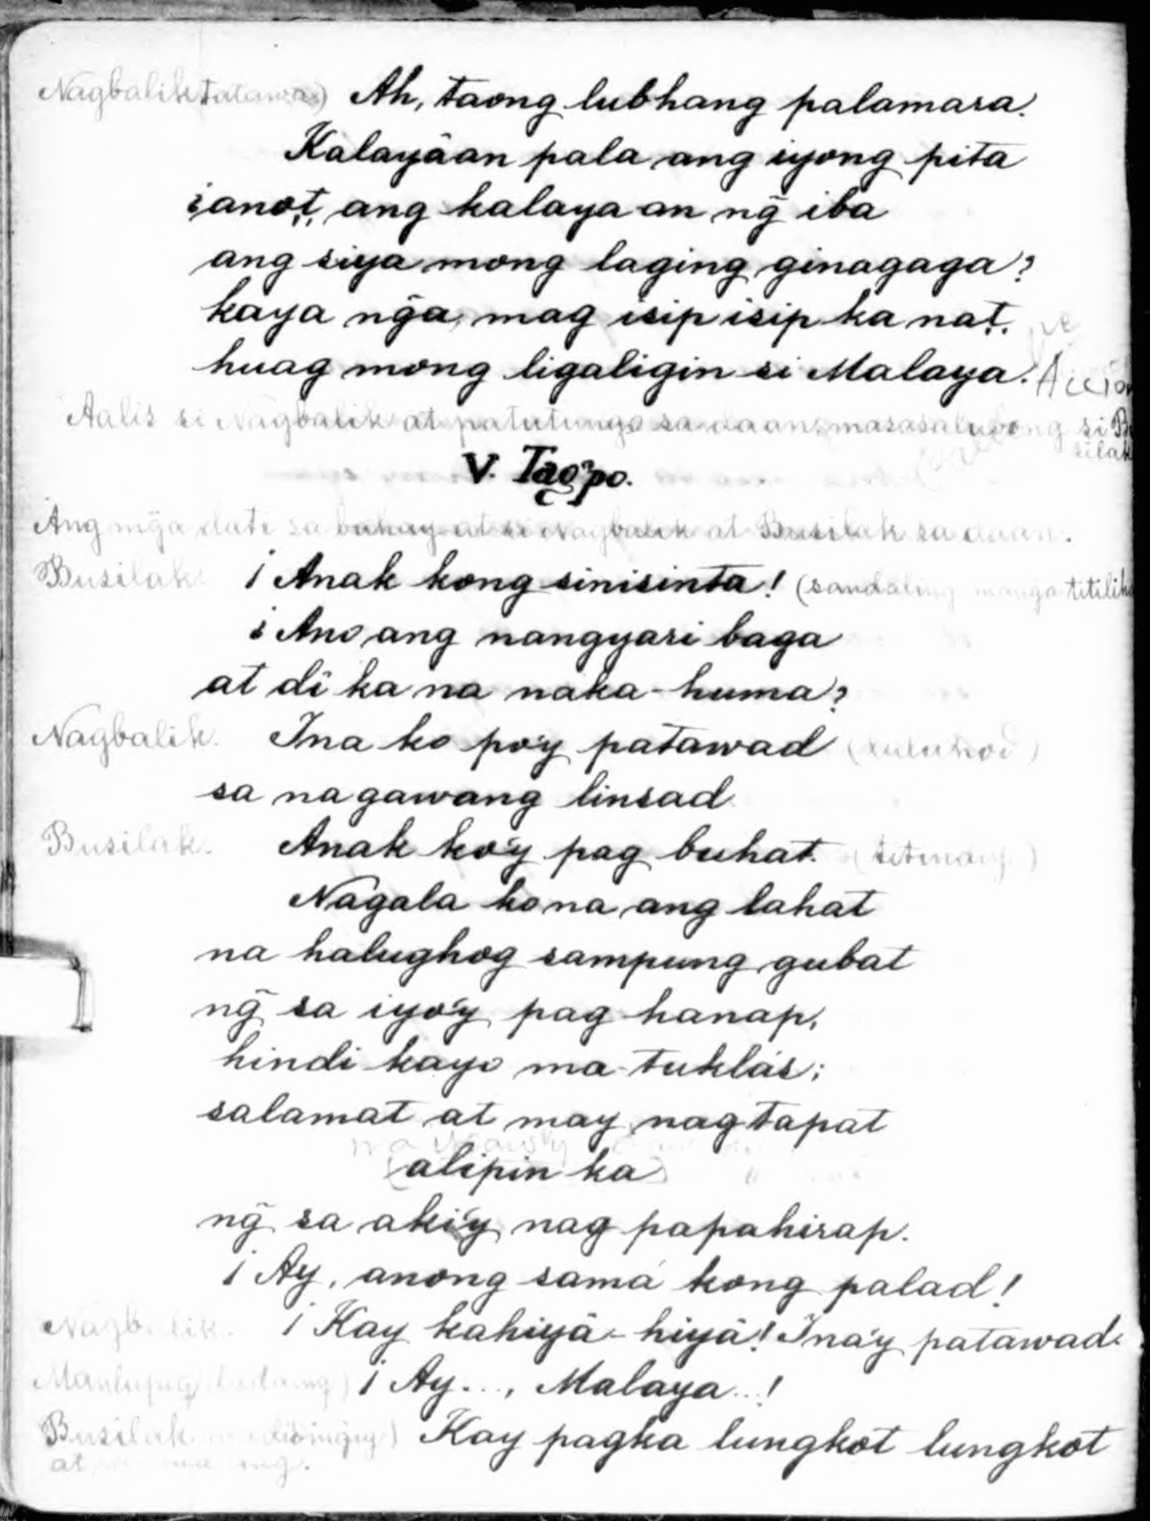 Nagbalik tatawa) Ah, taong lubhang palamara.
Kalayâan pala ang iyong pita
¿anot, ang kalayaan ng̃ iba
ang siya mong laging ginagaga?
kaya ng̃a, mag isip isip ka nat.
huag mong ligaligin si Malaya. Accion
Aalis si Nagbalik at patutungo sa daan, masasalubong si Bu
silak
V. Tagpo.
Ang mg̃a dati sa bahay at si Nagbalik at Busilak sa daan.
Busilak ¡Anak kong sinisinta! (sandaling
¿Ano ang nangyari baga
at di ka na naka-huma?
Nagbalik. Ina ko po'y patawad (luluhod)
sa nagawang linsad
Busilak. Anak ko'y pag buhat. (titindig)
Nagala ko na ang lahat
na halughog sampung gubat
ng̃ sa iyo'y pag-hanap,
hindi kayo ma-tuklás;
salamat at may nagtapat
(alipin ka)
ng̃ sa aki'y nag papahirap.
¡Ay, anong samá kong palad!
Nagbalik. ¡Kay kahiyâ-hiyâ! Ina'y patawad.
¡Ay..., Malaya...!
Busilak Kay pagka lungkot lungkot
at